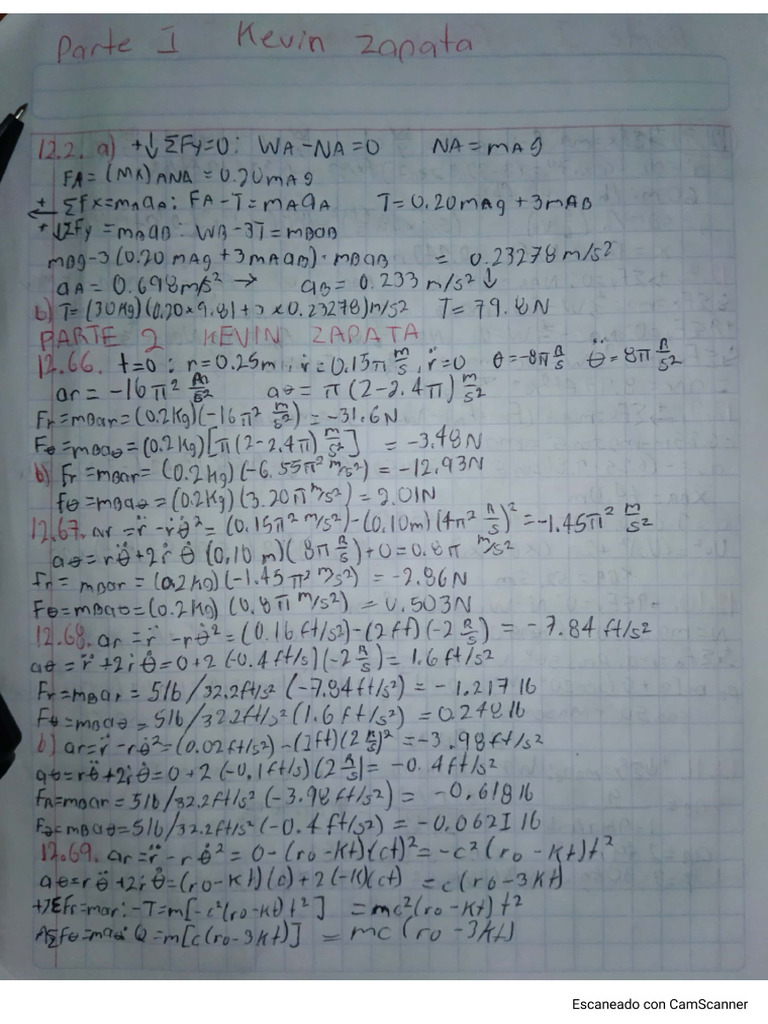 Parte I Kevin Zapata
12.2. a) +↓ΣFy=0: WA-NA=0 NA=mAg
FA=(MK)ANA=0.20mAg
+← Σfx=mAaA: FA-T=mAaA T=0.20mAg+3mAB
+↓ΣFy=mBaB: WB-3T=mBaB
mBg-3(0.20mAg+3mAaB)=mBaB = 0.23278m/s²
aA=0.698m/s² → aB=0.233m/s²↓
b) T=(30Kg)(0.20×9.81+3×0.23278)m/s2 T=79.8N
PARTE 2 KEVIN ZAPATA
12.66. t=0: r=0.25m, ṙ=0.15π m/s, r̈=0 θ=-8π R/s θ̈=8π R/s²
ar=-16π² m/s² aθ=π(2-2.4π) m/s²
Fr=mBar=(0.2Kg)(-16π² m/s²)=-31.6N
Fθ=mBaθ=(0.2Kg)[π(2-2.4π) m/s²] =-3.48N
b) Fr=mBar=(0.2Kg)(-6.55π² m/s²)=-12.93N
fθ=mBaθ=(0.2Kg)(3.20π m/s²)=2.01N
12.67. ar=r̈-rθ̇²=(0.15π² m/s²)-(0.10m)(4π² R/s)²=-1.45π² m/s²
aθ=rθ̈+2ṙθ̇ (0,10 m)(8π R/s)+0=0.8π m/s²
Fr=mBar=(0.2Kg)(-1.45π² m/s²)=-2.86N
Fθ=mBaθ=(0.2Kg)(0,8π m/s²)=0.503N
12.68. ar=r̈-rθ̇²=(0.16ft/s²)-(2ft)(-2 R/s)=-7.84ft/s²
aθ=r̈+2ṙθ̇=0+2(-0.4ft/s)(-2 R/s)=1.6ft/s²
Fr=mBar=5lb/32.2ft/s²(-7.84ft/s²)=-1.217lb
Fθ=mBaθ=5lb/32.2ft/s²(1.6ft/s²)=0.248lb
b) ar=r̈-rθ̇²=(0.02ft/s²)-(1ft)(2 R/s)²=-3.98ft/s²
aθ=rθ̈+2ṙθ̇=0+2(-0.1ft/s)(2 R/s)=-0.4ft/s²
FR=mBar=5lb/32.2ft/s²(-3.98ft/s²)=-0.618lb
Fθ=mBaθ=5lb/32.2ft/s²(-0.4ft/s²)=-0.0621lb
12.69. ar=r̈-rθ̇²=0-(r0-Kt)(ct)²=-c²(r0-Kt)t²
aθ=rθ̈+2ṙθ̇=(r0-Kt)(c)+2(-K)(ct) =c(r0-3Kt)
+↗ΣFr=mar: -T=m[-c²(r0-Kt)t²] =mc²(r0-Kt)t²
ΣFθ=maθ: Q=m[c(r0-3Kt)] =mc(r0-3Kt)
Escaneado con CamScanner